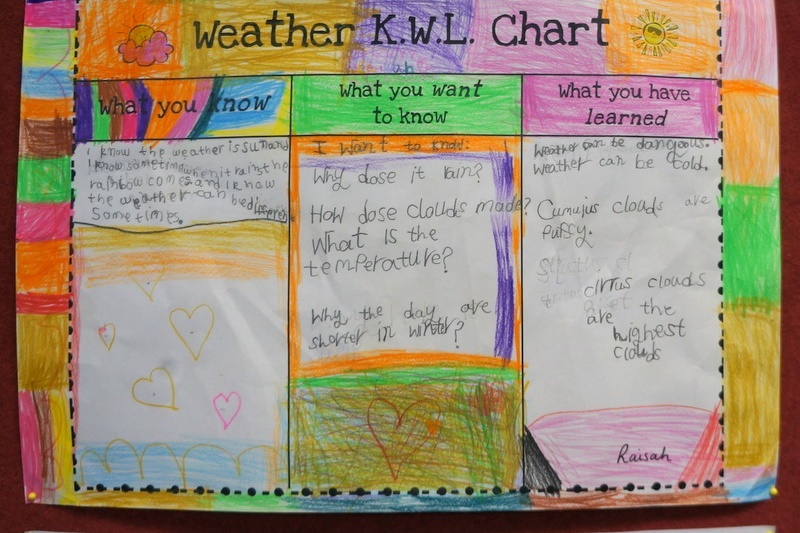 Weather K.W.L. Chart
What you know
I know the weather is sun and
I know sometime when it rains the
rainbow comes and I know
the weather can be different
Sometimes.
What you want
to know
I Want to know:
Why dose it rain?
How dose clouds made?
What is the
temperature?
Why the day are
shorter in winter?
What you have
learned
Weather can be dangeous.
Weather can be cold.
Cumujus clouds are
puffy.
cirrus clouds
are the
highest
clouds
Raisah